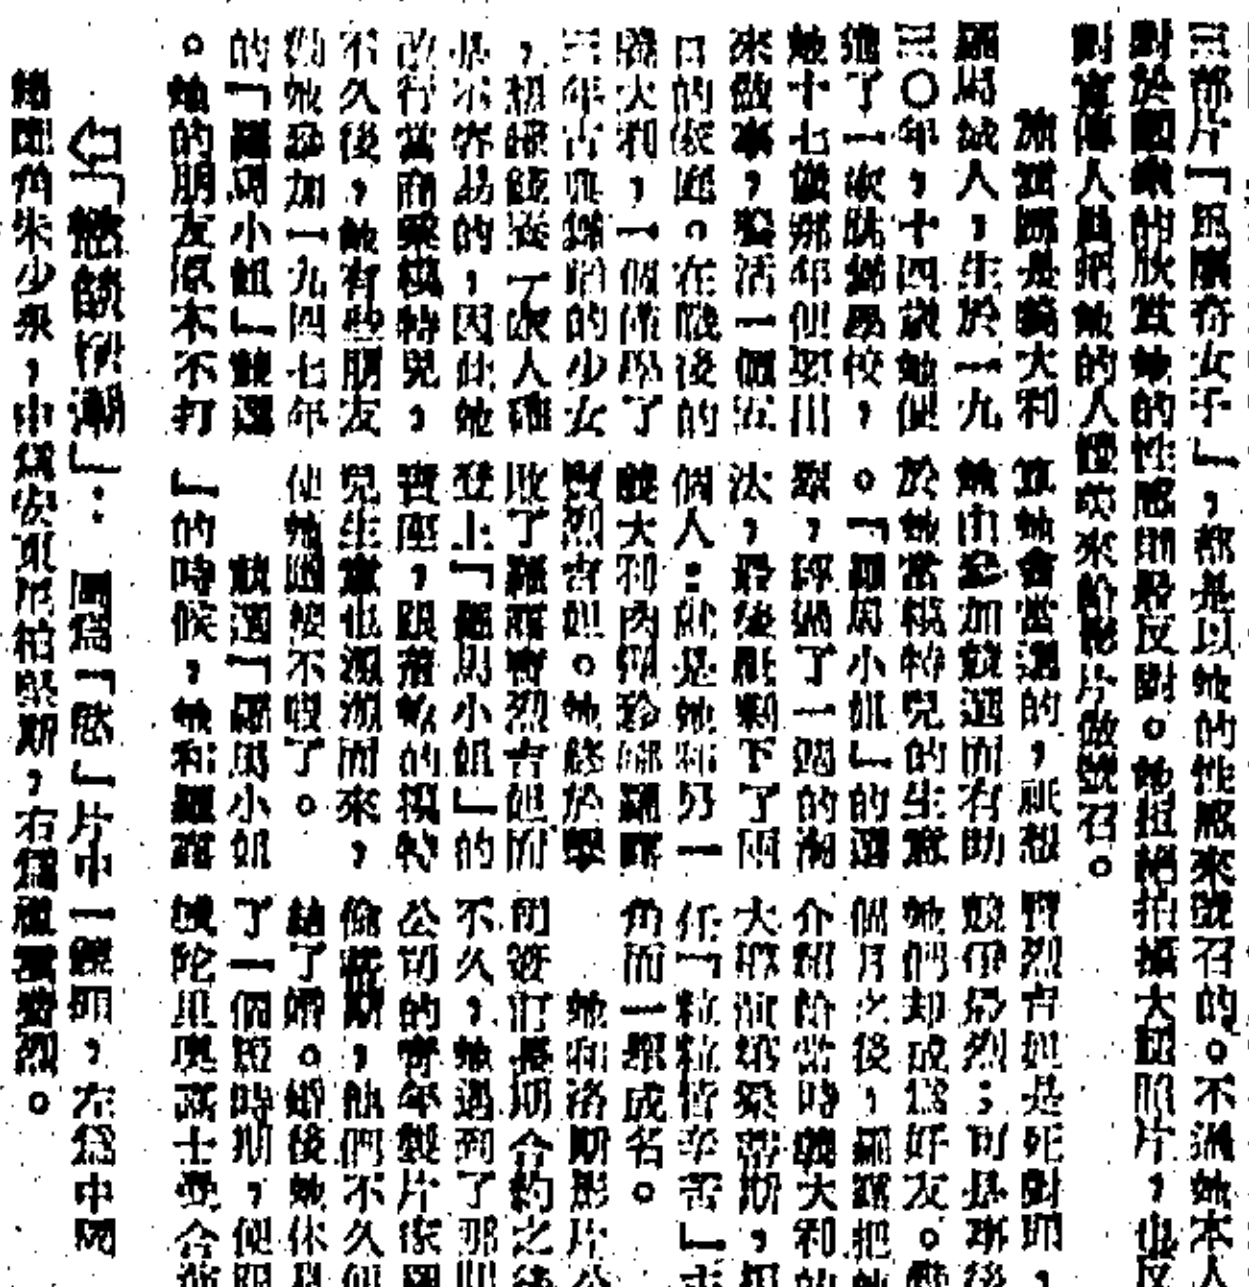 三部片「風塵奇女子」,都是以她的性感來號召的。不過她本人
對於觀衆的欣賞她的性感則殷反對。她拒絕拍攝大腿照片,也反
對宣傳人員把她的人體吹來給影片做號召。
娜是義大利
羅馬城人,生於一九
三〇年,十四歲她便
進了一家跳舞學校,
她十七歲那年便要出
來做事,養活一個五
口的家庭。在戰後的
義大利,一個僅學了
三年古典舞蹈的少女
,想賺錢養一家人確
是不容易的,因此她
改行當商業模特兒,
不久後,她有些朋友
勸她參加一九四七年
的「羅馬小姐」競選
。她的朋友原本不打
算她會當選的,祇想
她由參加競選而有助
於她當模特兒的生意
。「羅馬小姐」的選
舉,經過了一場的淘
汰,最後祇剩下了兩
個人:就是她和另一
義大利肉彈珍娜羅露
寶烈吉妲。她終於擊
敗了羅露寶烈吉妲而
登上「羅馬小姐」的
寶座,跟着她的模特
兒生意也源源而來,
使她應接不暇了。
競選「羅馬小姐
」的時候,她和羅露
寶烈吉妲是死對頭,
競爭最烈;可是事後
她們却成爲好友。幾
個月之後,羅露把她
介紹給當時義大利的
大導演第桑蒂斯,担
任「粒粒皆辛苦」主
角而一舉成名。
她和洛斯影片公
司簽訂長期合約之後
不久,她遇到了那間
公司的青年製片家羅
斯,他們不久便
結了婚。婚後她休息
了一個短時期,便跟
士受合
」:圖爲「慾」片中一鏡頭,左爲中國
角朱少泉,中爲安東尼柏堅斯,右爲羅露寶烈。